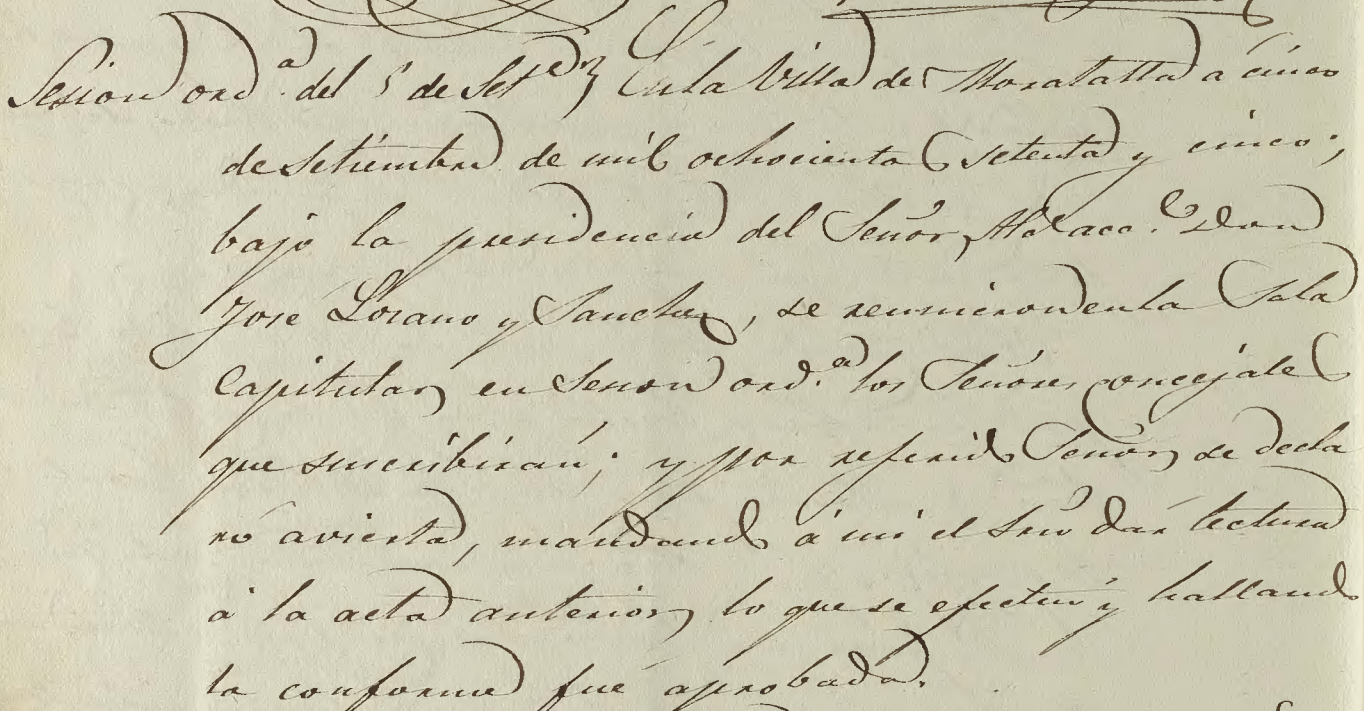 Sesion ord.ª del 5 de Set.e En la Villa de Moratalla á cinco
de Setiembre de mil ochocientos setenta y cinco;
bajo la presidencia del Señor Alc. acc.l Don
José Lozano y Sanchez, se reunieron en la Sala
Capitular, en Sesion ord.ª los Señores concejales
que suscribirán; y por referido Señor, se decla
ró avierta, mandando á mi el Srio dár lectura
á la acta anterior, lo que se efectuó y hallando
la conforme fué aprobada.